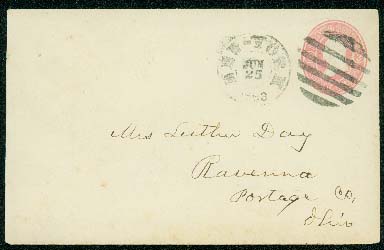 NEW-YORK
JUN
25
Mrs Luther Day
Ravenna
Portage Co,
Ohio